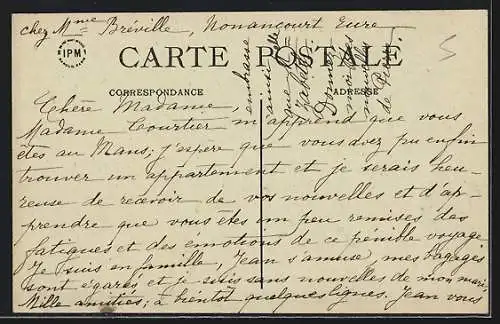 chez Mme Bréville, Nonancourt Eure
IPM
CARTE POSTALE
CORRESPONDANCE
ADRESSE
Chère Madame,
Madame Courtier m'apprend que vous
êtes au Mans; j'espère que vous avez pu enfin
trouver un appartement et je serais heu-
reuse de recevoir de vos nouvelles et d'ap-
prendre que vous êtes un peu remises des
fatigues et des émotions de ce pénible voyage
Je suis en famille, Jean s'amuse, mes bagages
sont égarés et je suis sans nouvelles de mon mari
Mille amitiés; à bientôt quelques lignes. Jean vous
embrasse
ainsi
que
Donnez
moi des
nouvelles
de